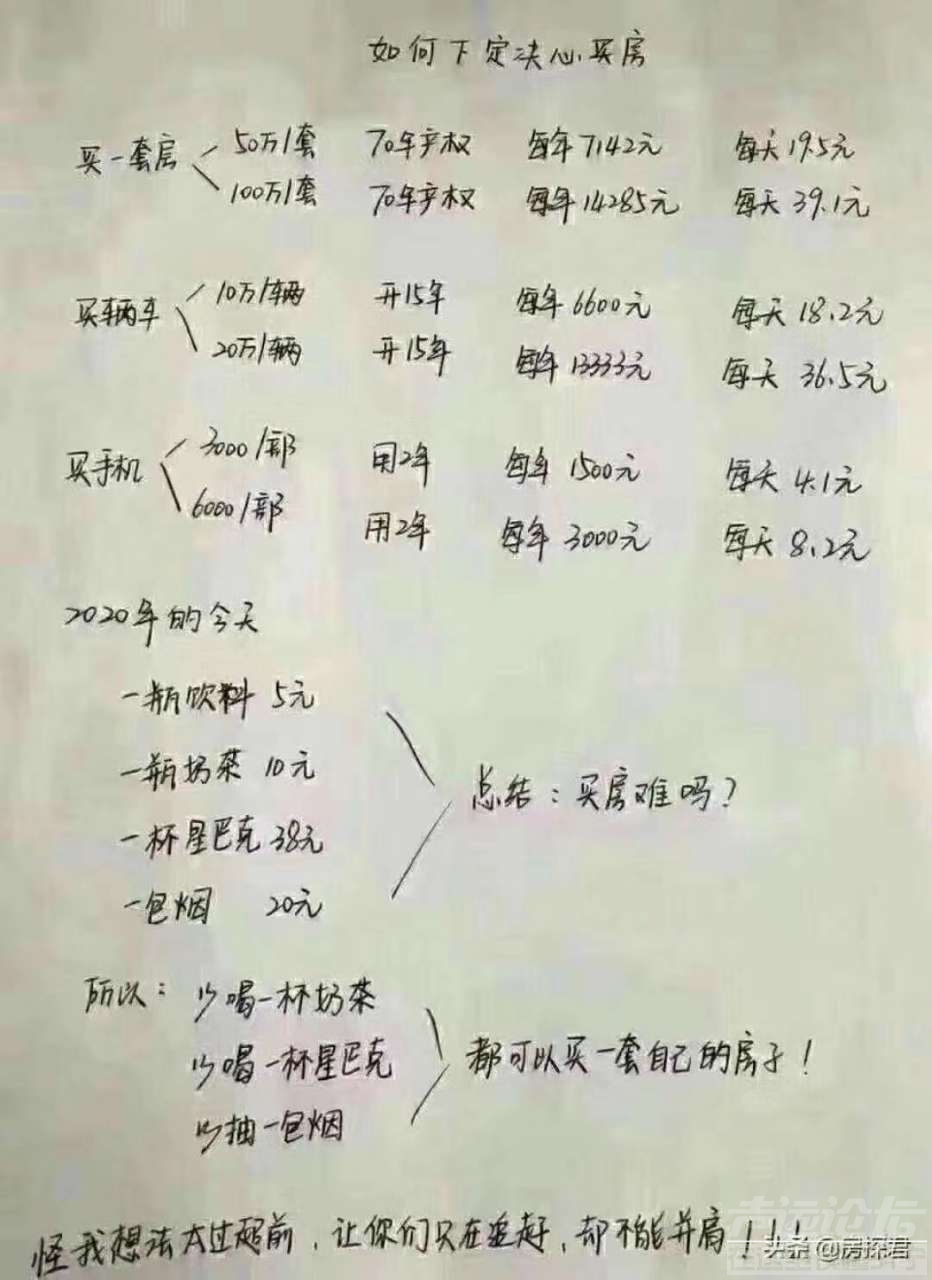 如何下定决心买房
买一套房 50万/套 70年产权 每年7142元 每天19.5元
100万/套 70年产权 每年14285元 每天39.1元
买辆车 10万/辆 开15年 每年6600元 每天18.2元
20万/辆 开15年 每年13333元 每天36.5元
买手机 3000/部 用2年 每年1500元 每天4.1元
6000/部 用2年 每年3000元 每天8.2元
2020年的今天
一瓶饮料 5元
一瓶奶茶 10元
总结：买房难吗？
一杯星巴克 38元
一包烟 20元
所以：少喝一杯奶茶
少喝一杯星巴克 都可以买一套自己的房子！
少抽一包烟
怪我想法太过超前，让你们只在追赶，却不能并肩！！！
头条 @房探君